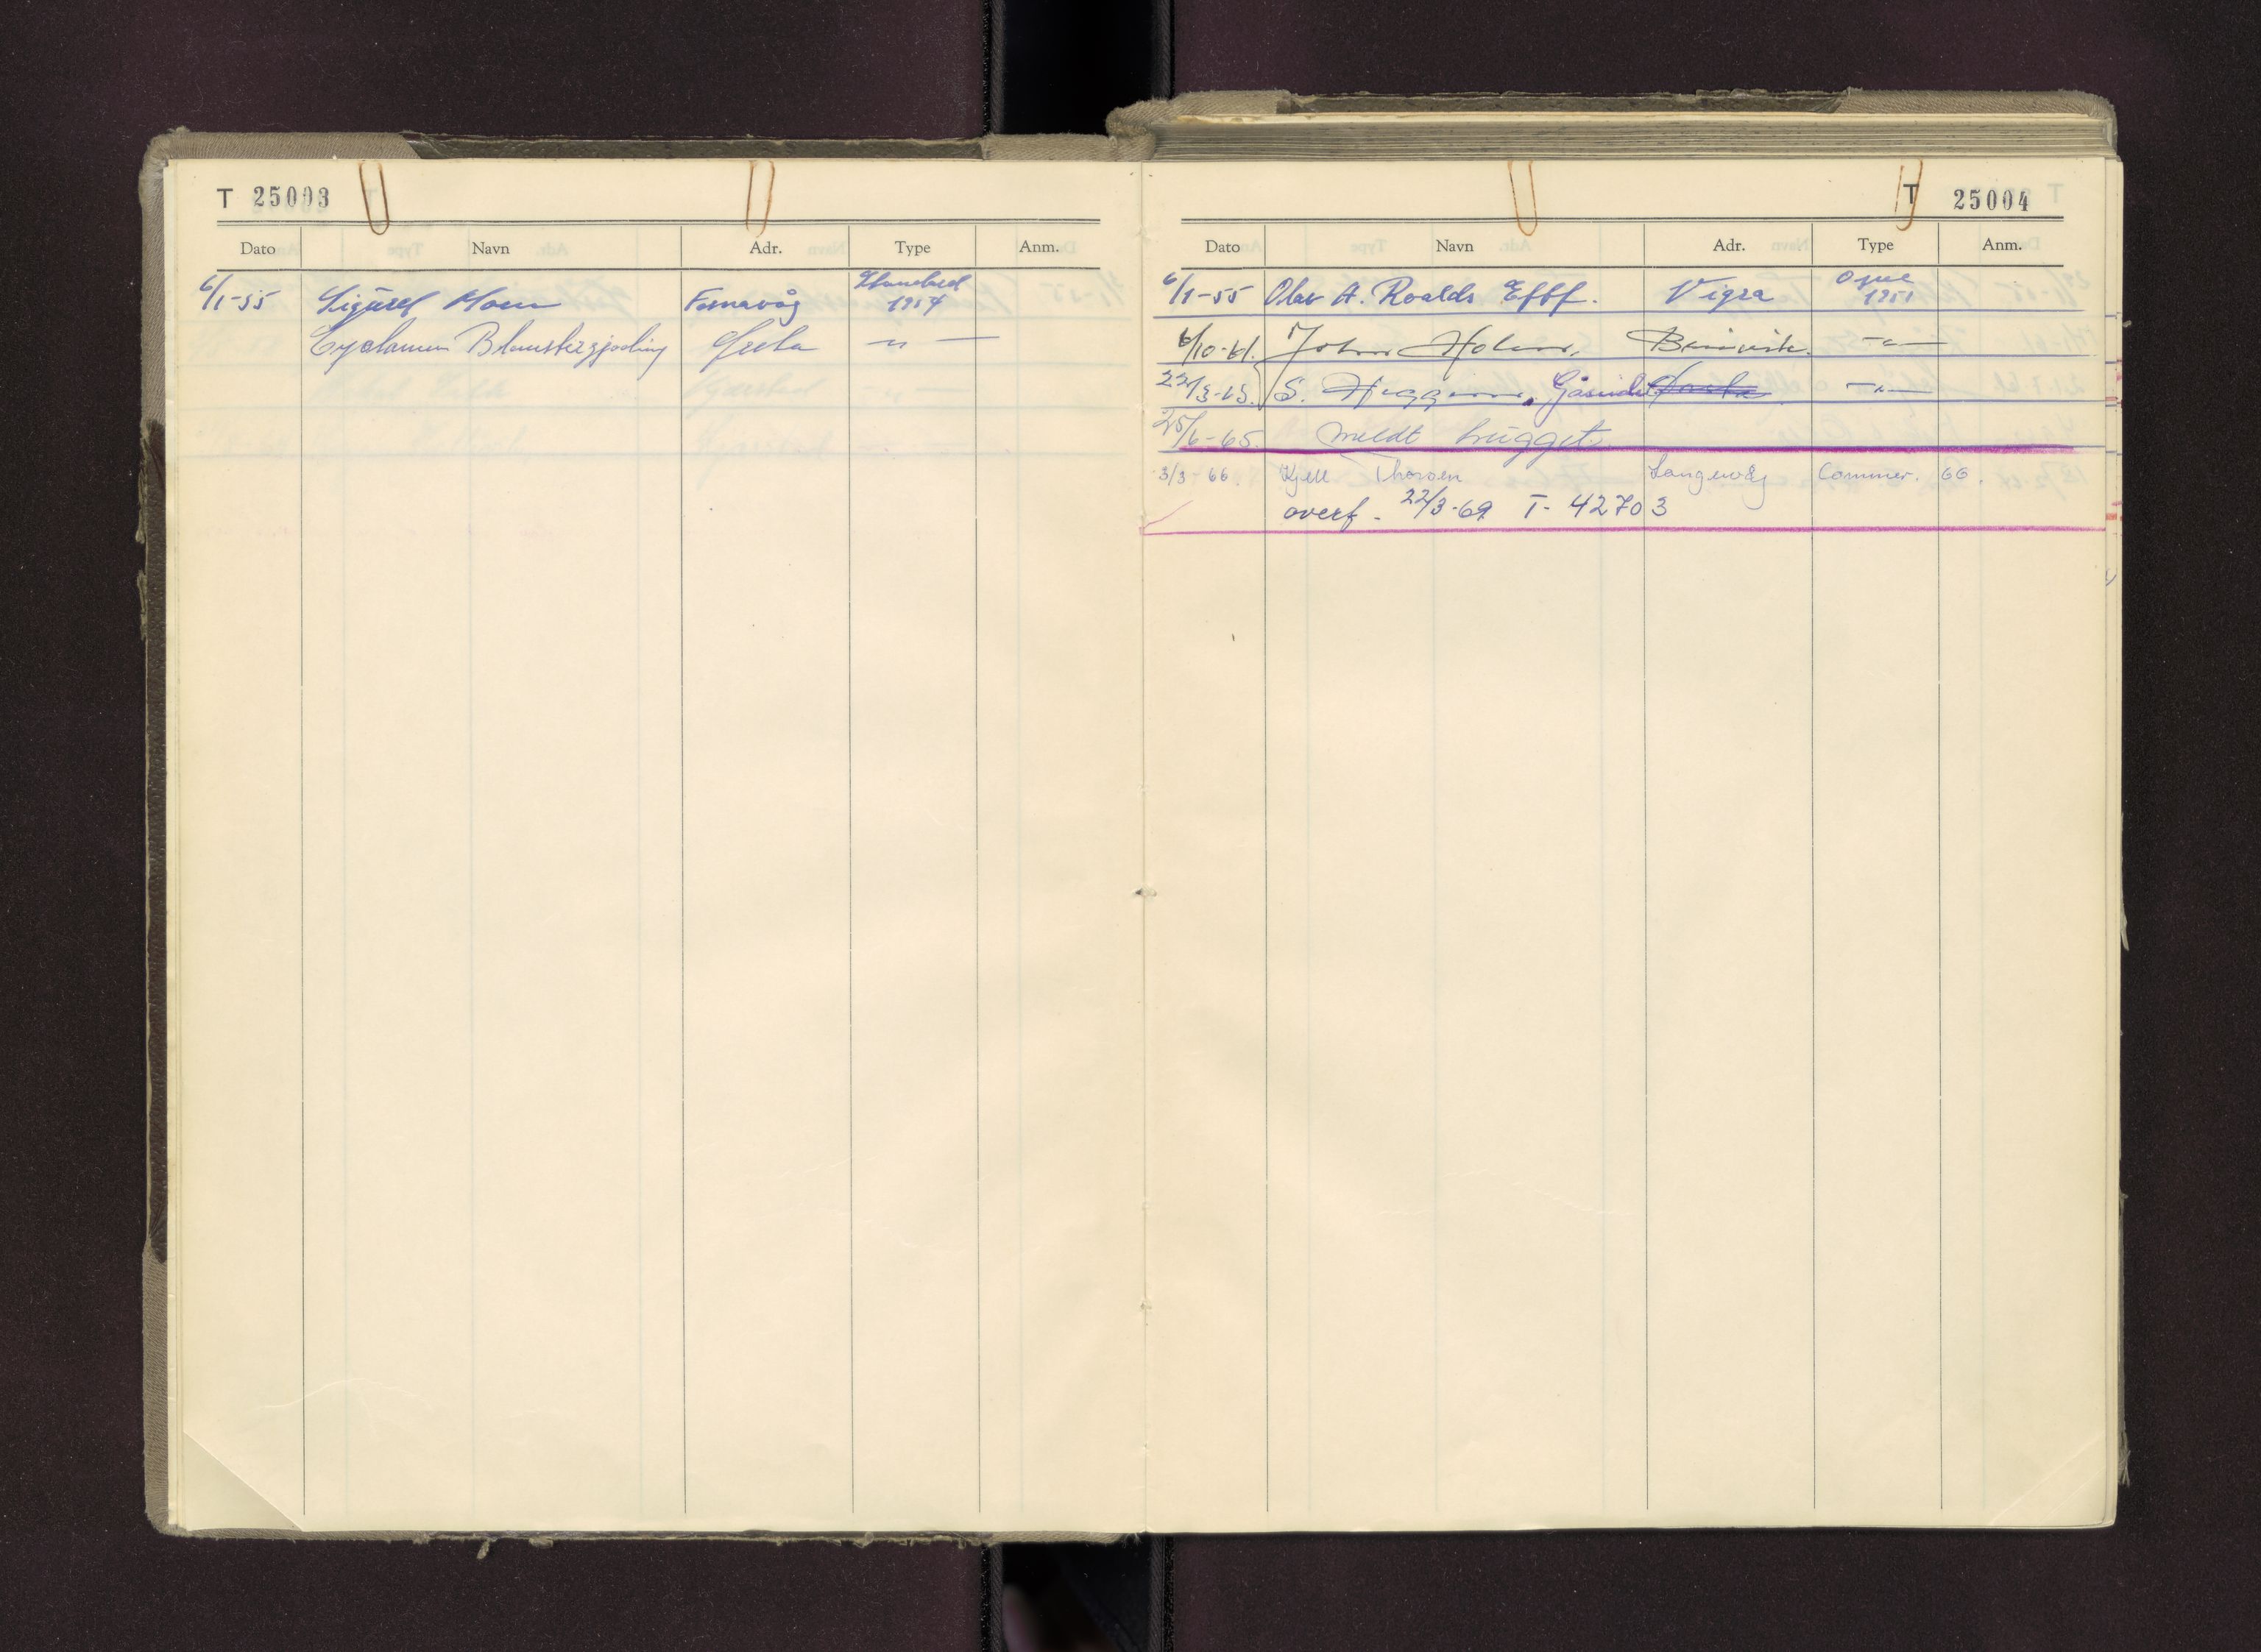 T 25003
Dato Navn Adr. Type Anm.
6/1-55 Sigurd Moen Fosnavåg Standard 1954
Cyclamen Blomsterforretning Ørsta — " —
T 25004
Dato Navn Adr. Type Anm.
6/1-55 Olav A. Roalds Eftf. Vigra Opel 1951
6/10-61. John Holen, Brusvik. — " —
22/3-65. S. Haggen, Gåseid — " —
25/6-65. meldt hugget.
3/3-66. Kjell Thorsen Langevåg Commer. 66.
overf. 22/3-69 T- 42703